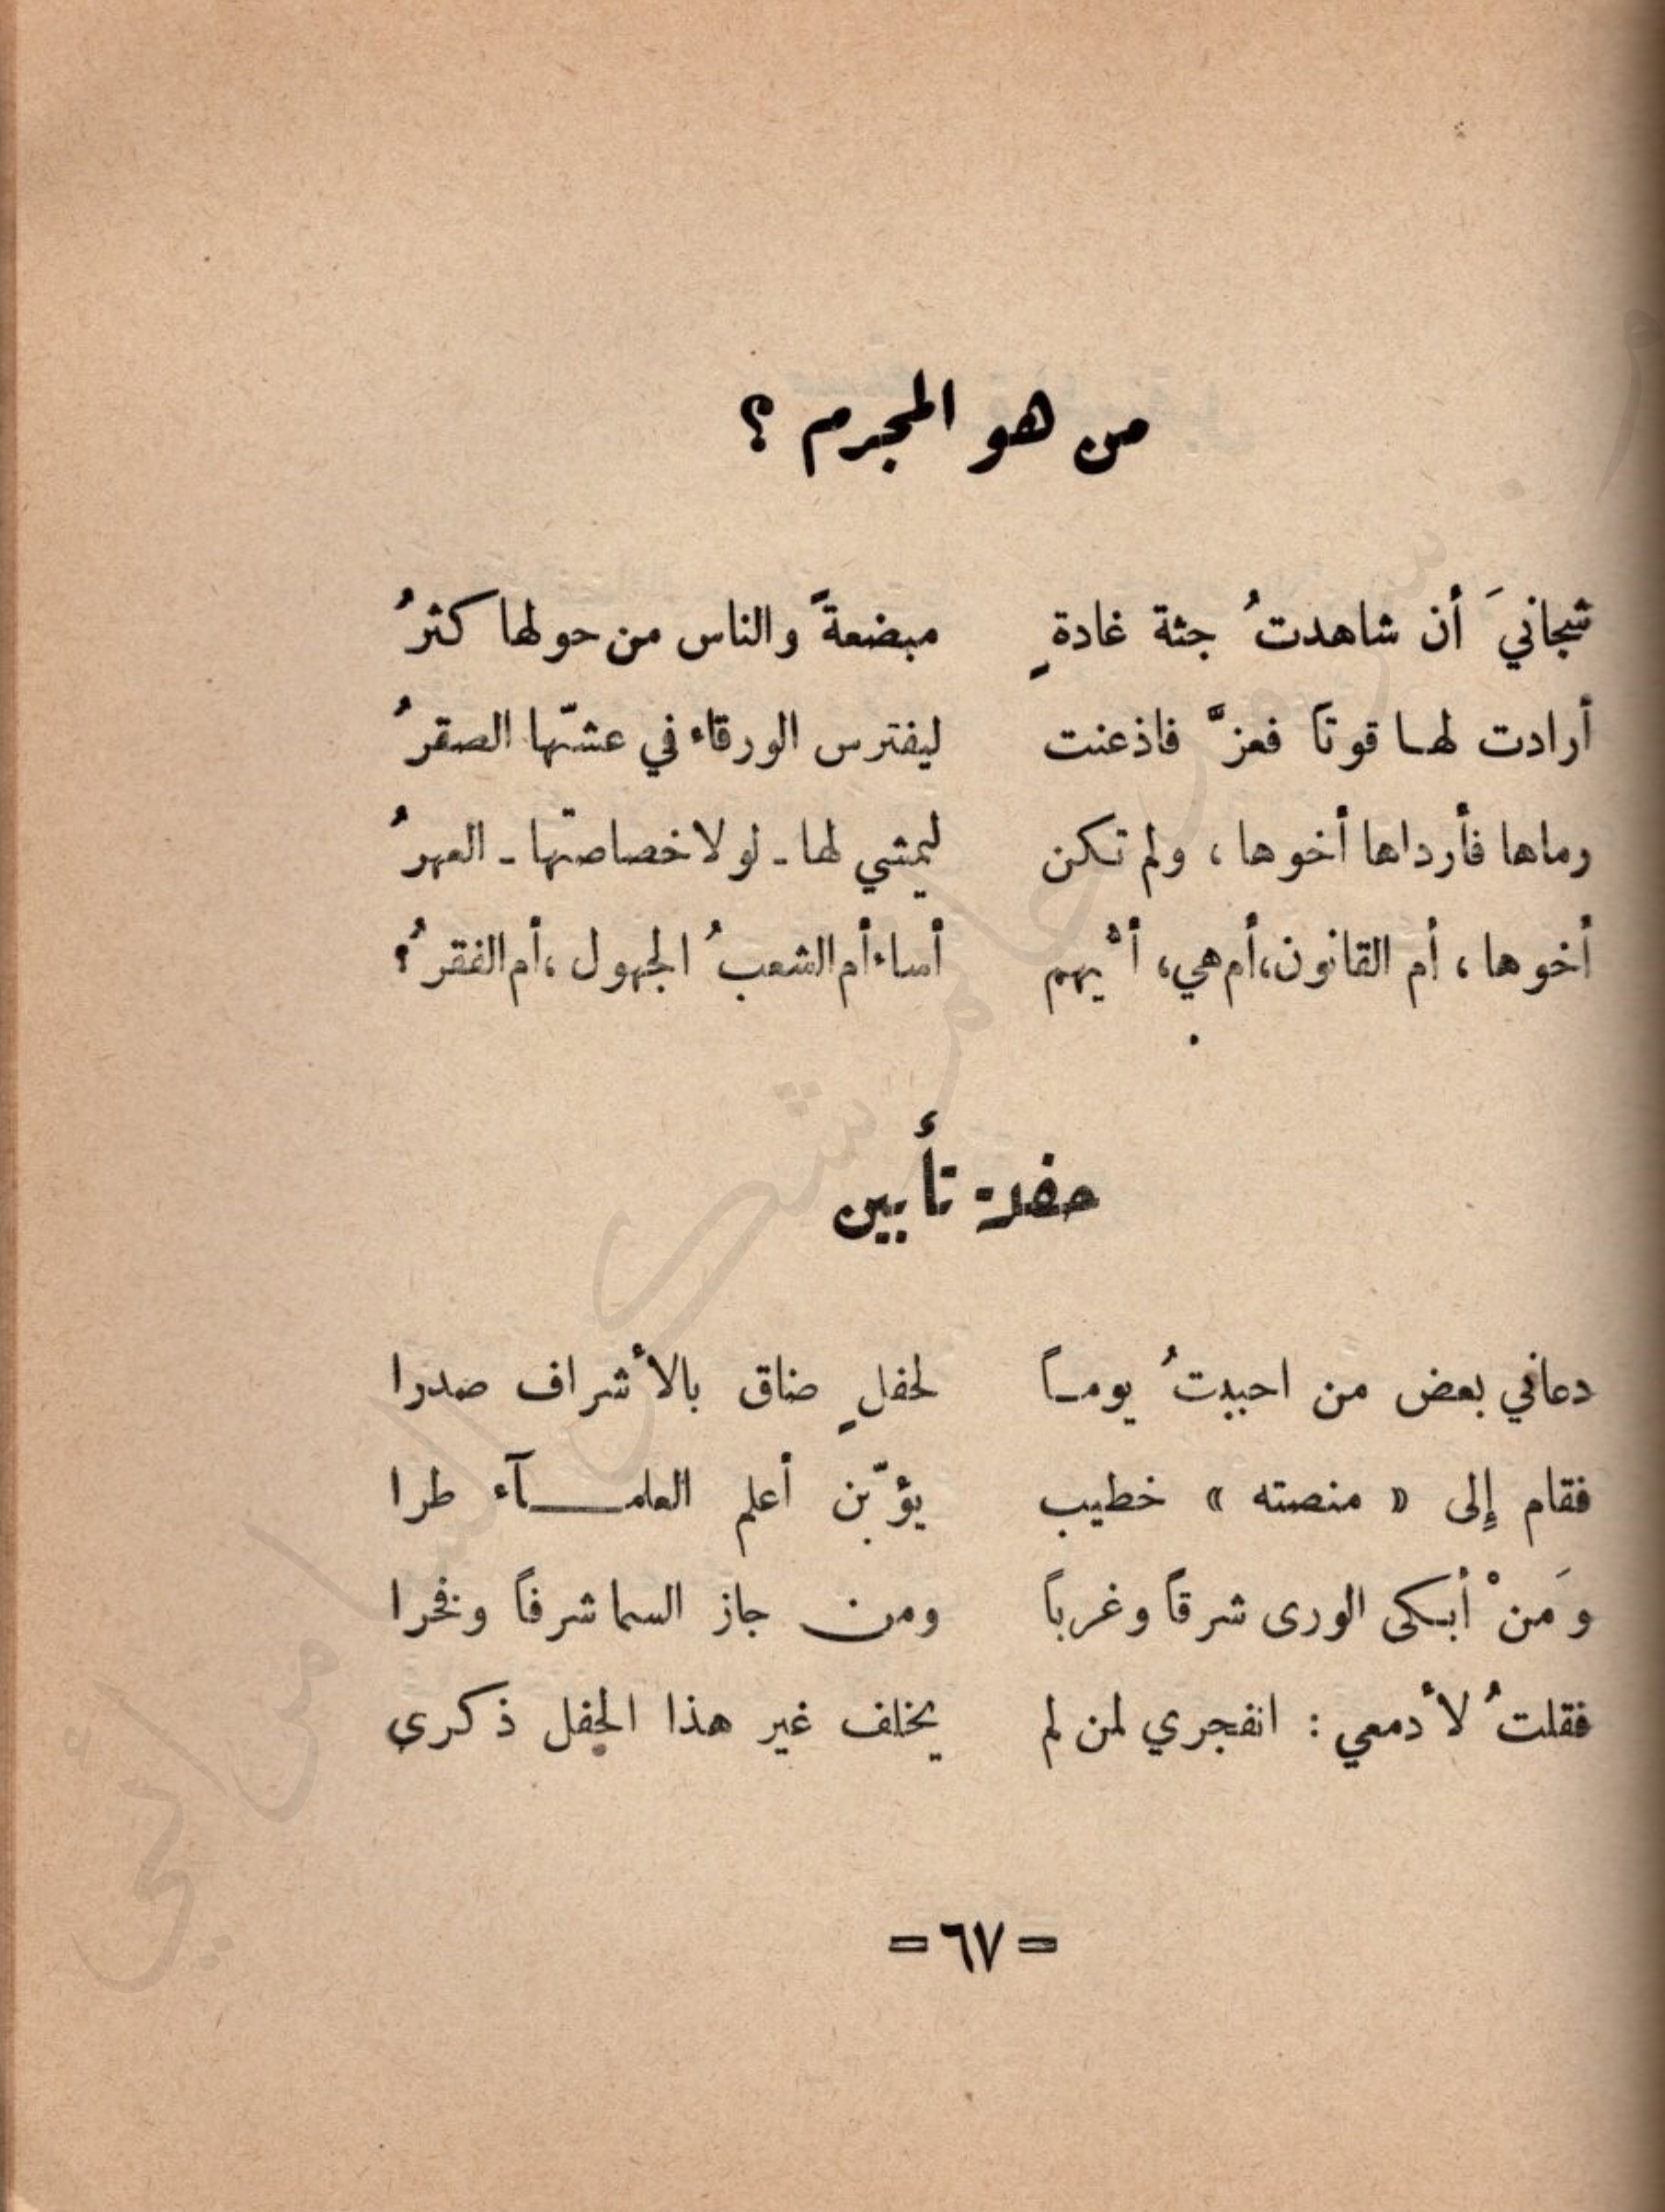 من هو المجرم ؟
شجانيَ أن شاهدتُ جثة غادةٍ مبضعةً والناس من حولها كثرُ
أرادت لها قوتاً فعزَّ فاذعنت ليفترس الورقاء في عشّها الصقرُ
رماها فأرداها أخوها ، ولم تكن ليمشي لها - لولا خصاصتها - العهرُ
أخوها ، أم القانون،أم هي، أيْهم أساء أم الشعبُ الجهول ،أم الفقرُ؟
حفلة تأبين
دعاني بعض من احببتُ يوماً لحفلٍ ضاق بالأشراف صدرا
فقام إلى « منصته » خطيب يؤبّن أعلم العلمآء طرا
وَمنْ أبكى الورى شرقاً وغرباً ومن جاز السما شرفاً وفخرا
فقلتُ لأدمعي : انفجري لمن لم يخلف غير هذا الحفل ذكرى
= ٦٧ =